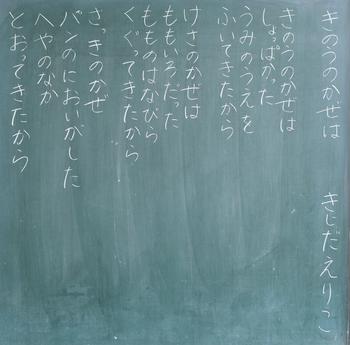 きのうのかぜは　きしだえりこ
きのうのかぜは
しょっぱかった
うみのうえを
ふいてきたから
けさのかぜは
ももいろだった
もものはなびら
くぐってきたから
さっきのかぜ
パンのにおいがした
へやのなか
とおってきたから